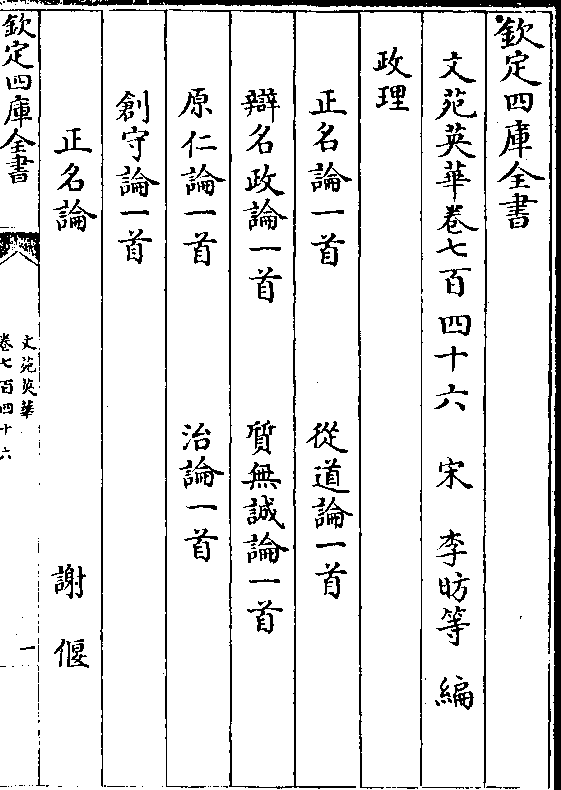 欽定四庫全書
文苑英華卷七百四十六　宋　李昉等　編
政理
正名論一首　從道論一首
辯名政論一首　質無誠論一首
原仁論一首　治論一首
創守論一首
正名論　謝偃
欽定四庫全書
文苑英華
卷七百四十六
一